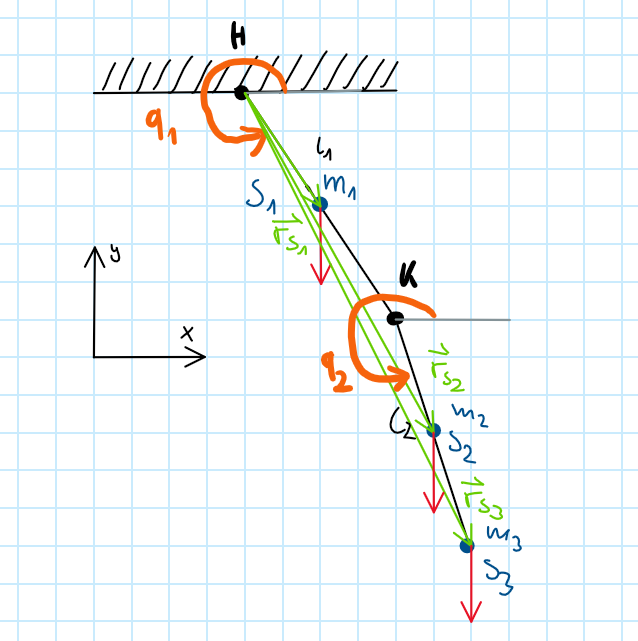 H
q1
l1
m1
S1
r⃗S1
K
y
x
q2
r⃗S2
l2
m2
S2
r⃗S3
m3
S3